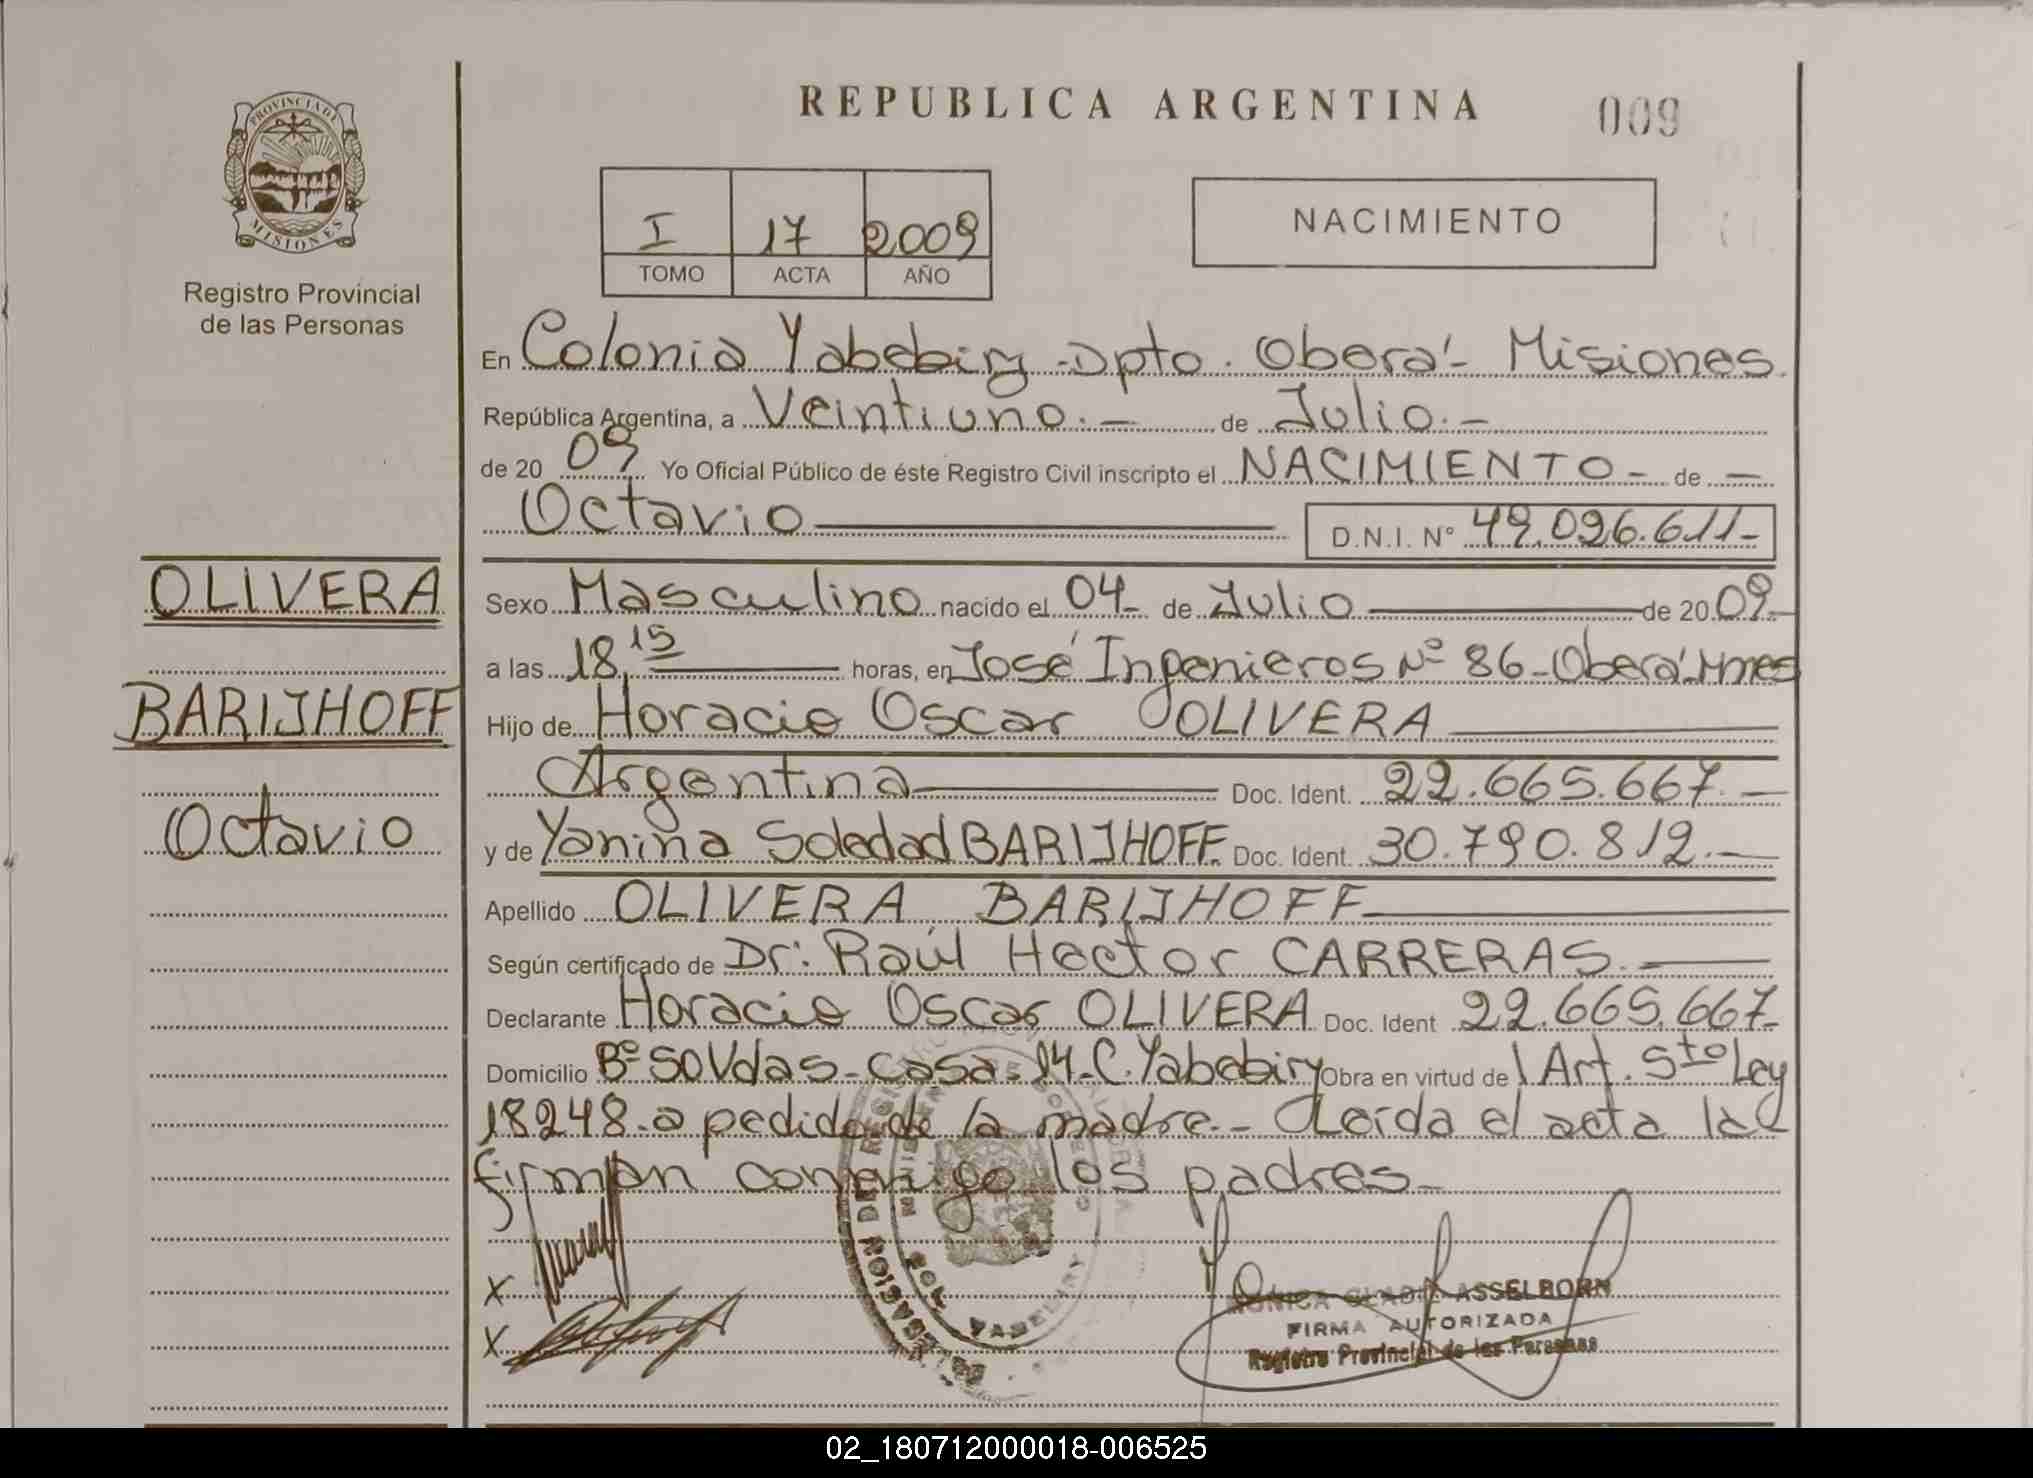 REPUBLICA ARGENTINA
009
PROVINCIA DE
MISIONES
Registro Provincial
de las Personas
I 17 2009
TOMO ACTA AÑO
NACIMIENTO
En Colonia Yabebiry - Dpto. Oberá - Misiones
República Argentina, a Veintiuno.- de Julio.-
de 20 09 Yo Oficial Público de éste Registro Civil inscripto el NACIMIENTO - de -
Octavio D.N.I. N° 49.096.611-
OLIVERA
BARIJHOFF
Octavio
Sexo Masculino nacido el 04- de Julio de 20 09-
a las 18,15 horas, en José Ingenieros Nº 86 - Oberá - Mnes
Hijo de Horacio Oscar OLIVERA
Argentina Doc. Ident. 22.665.667.-
y de Yanina Soledad BARIJHOFF. Doc. Ident. 30.790.812.-
Apellido OLIVERA BARIJHOFF
Según certificado de Dr: Raúl Hector CARRERAS.
Declarante Horacio Oscar OLIVERA Doc. Ident 22.665.667-
Domicilio Bº 50 Vdas - Casa - 14 - C. Yabebiry Obra en virtud de l Art. 5to Ley
18248 - a pedido de la madre.- Leída el acta la
firman conmigo los padres-
X
X
MONICA GLADIS ASSELBORN
FIRMA AUTORIZADA
Registro Provincial de las Personas
02_180712000018-006525